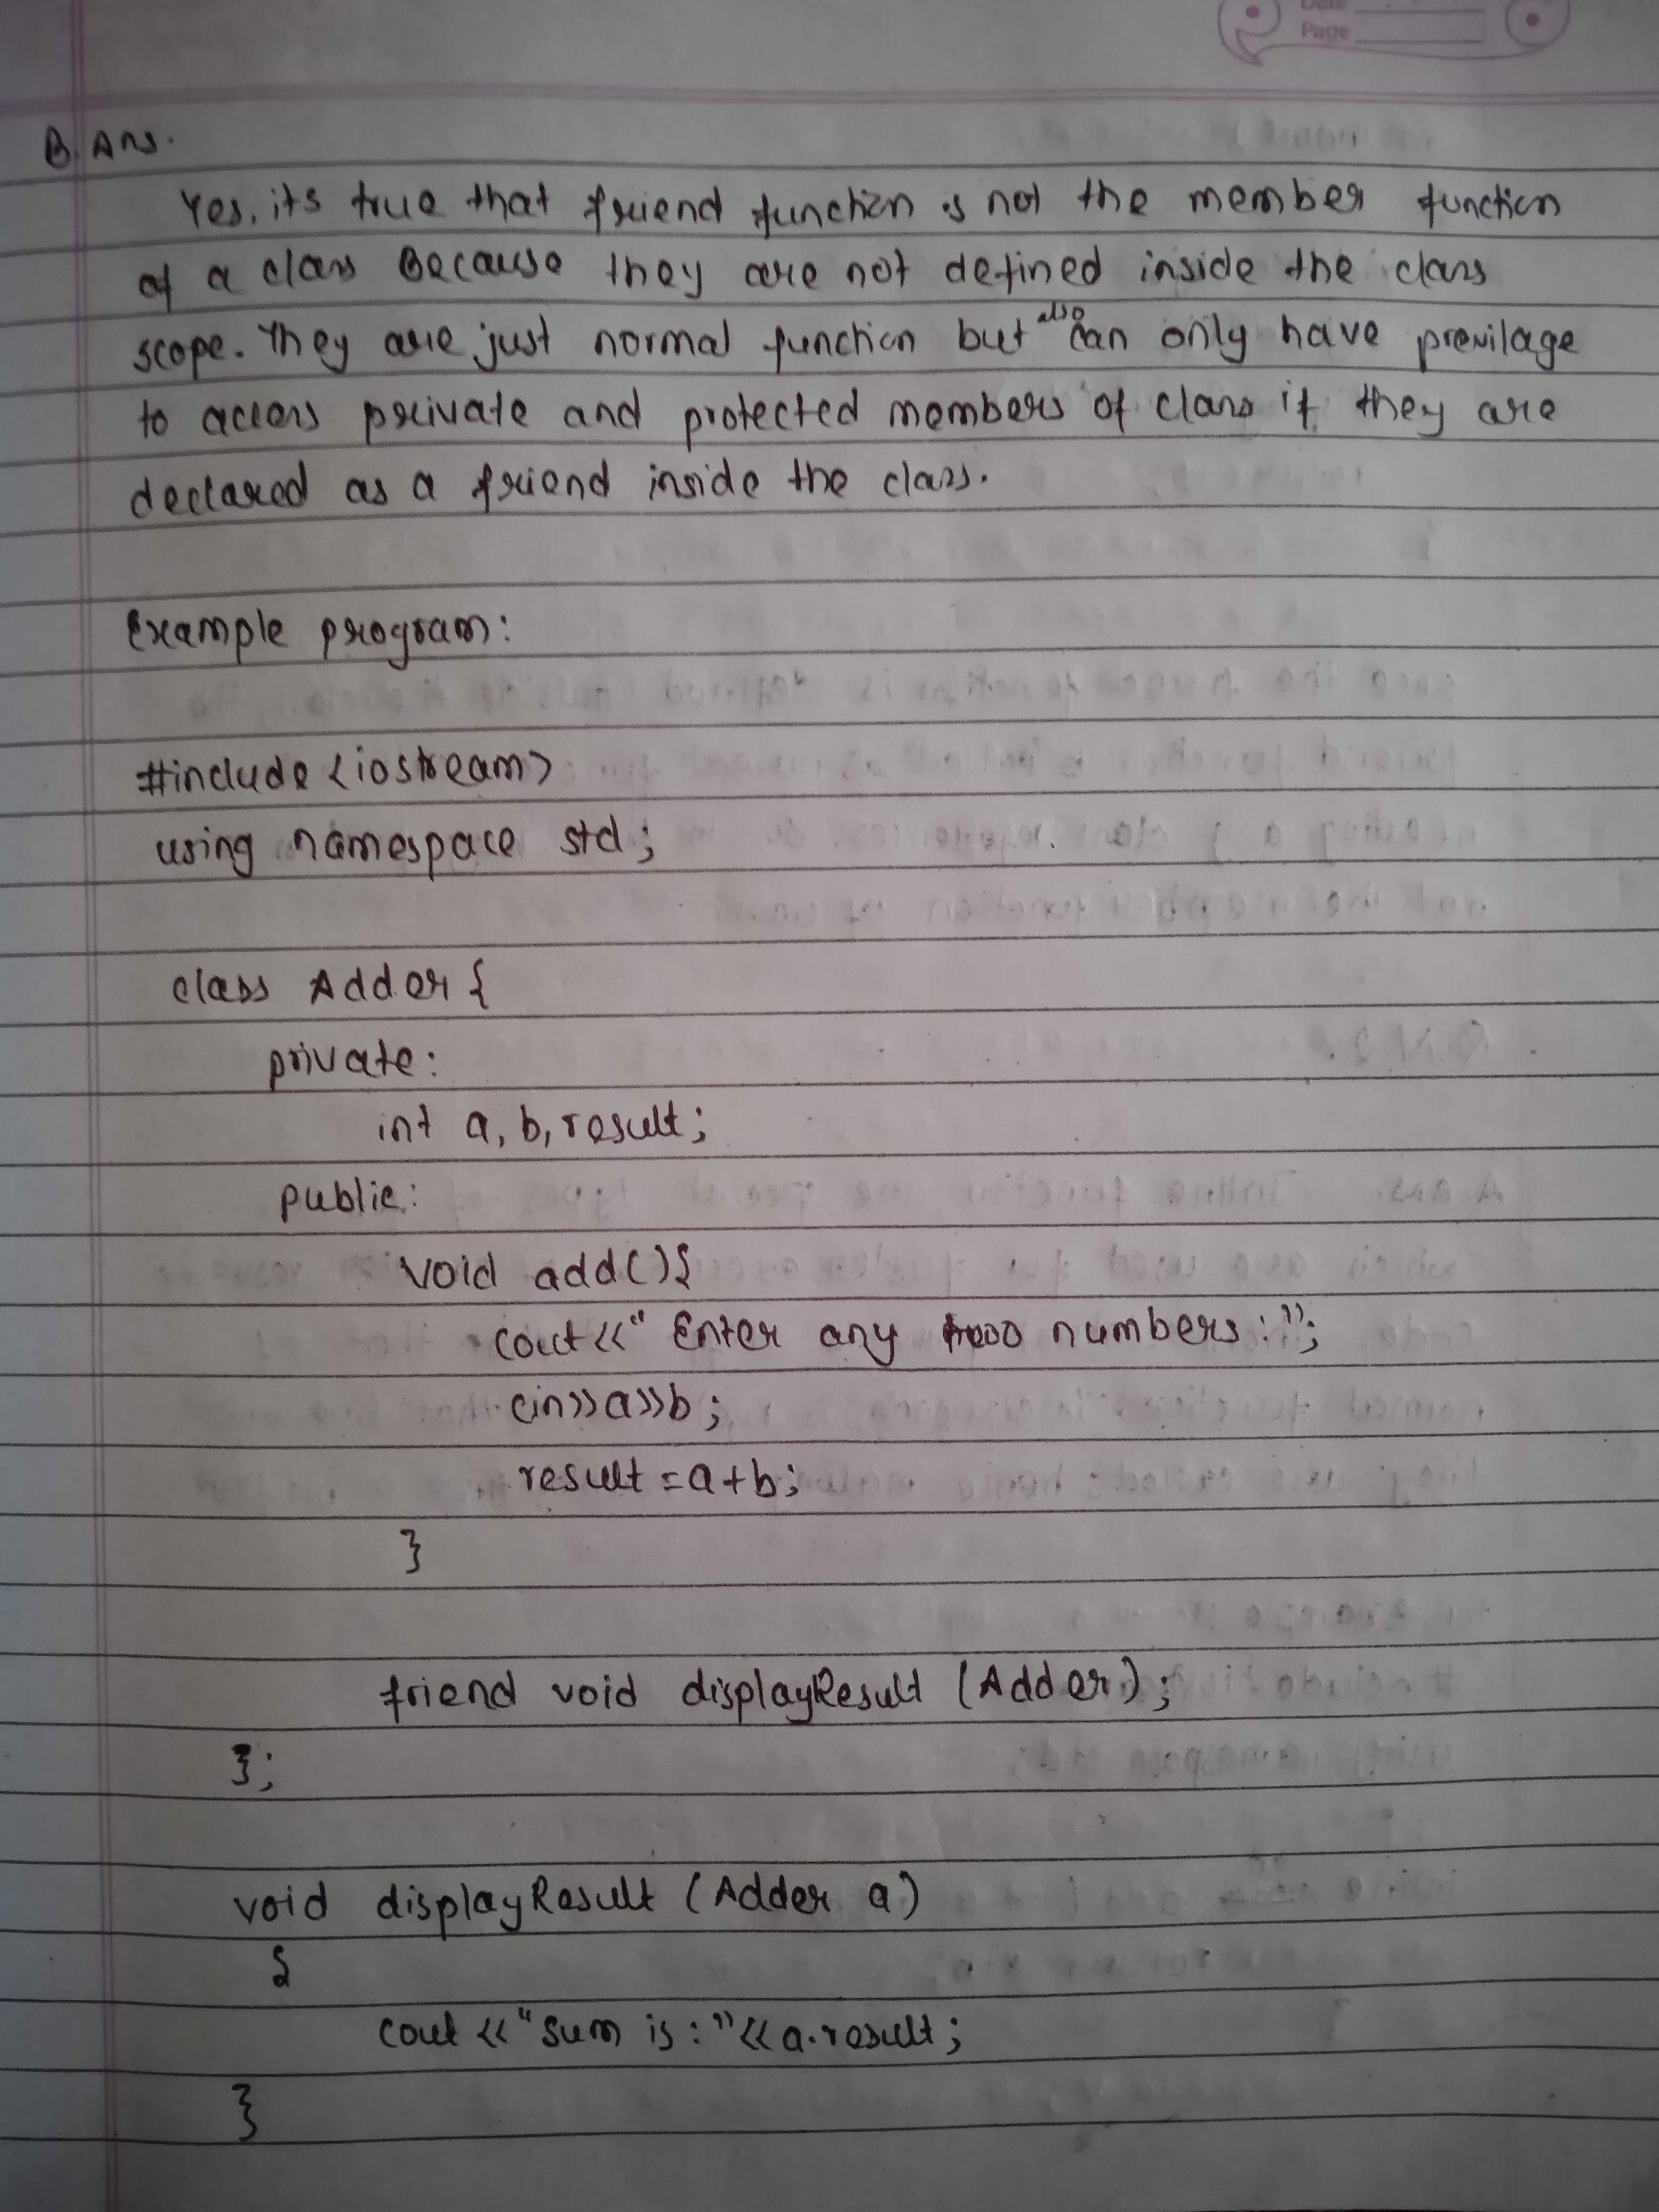 Date
Page
B. Ans.
Yes, its true that friend function is not the member function
of a class Because they are not defined inside the class
scope. They are just normal function but also can only have previlage
to access private and protected members of class if they are
declared as a friend inside the class.
Example program:
#include <iostream>
using namespace std;
class Adder {
private:
int a, b, result;
public:
void add(){
cout<<" Enter any two numbers: ";
cin>>a>>b;
result = a+b;
}
friend void displayResult (Adder);
};
void displayResult (Adder a)
{
cout << "Sum is: "<< a.result;
}